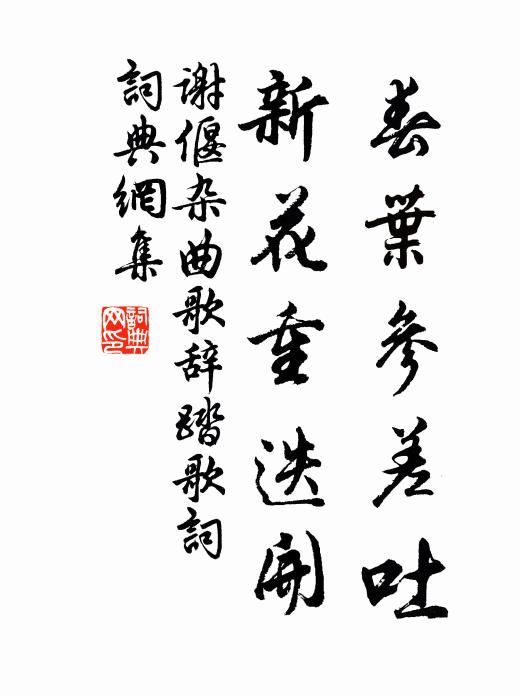 春葉參差吐
新花重迭開
谢偃杂曲歌辞踏歌詞
詞典網集
詞典
网印